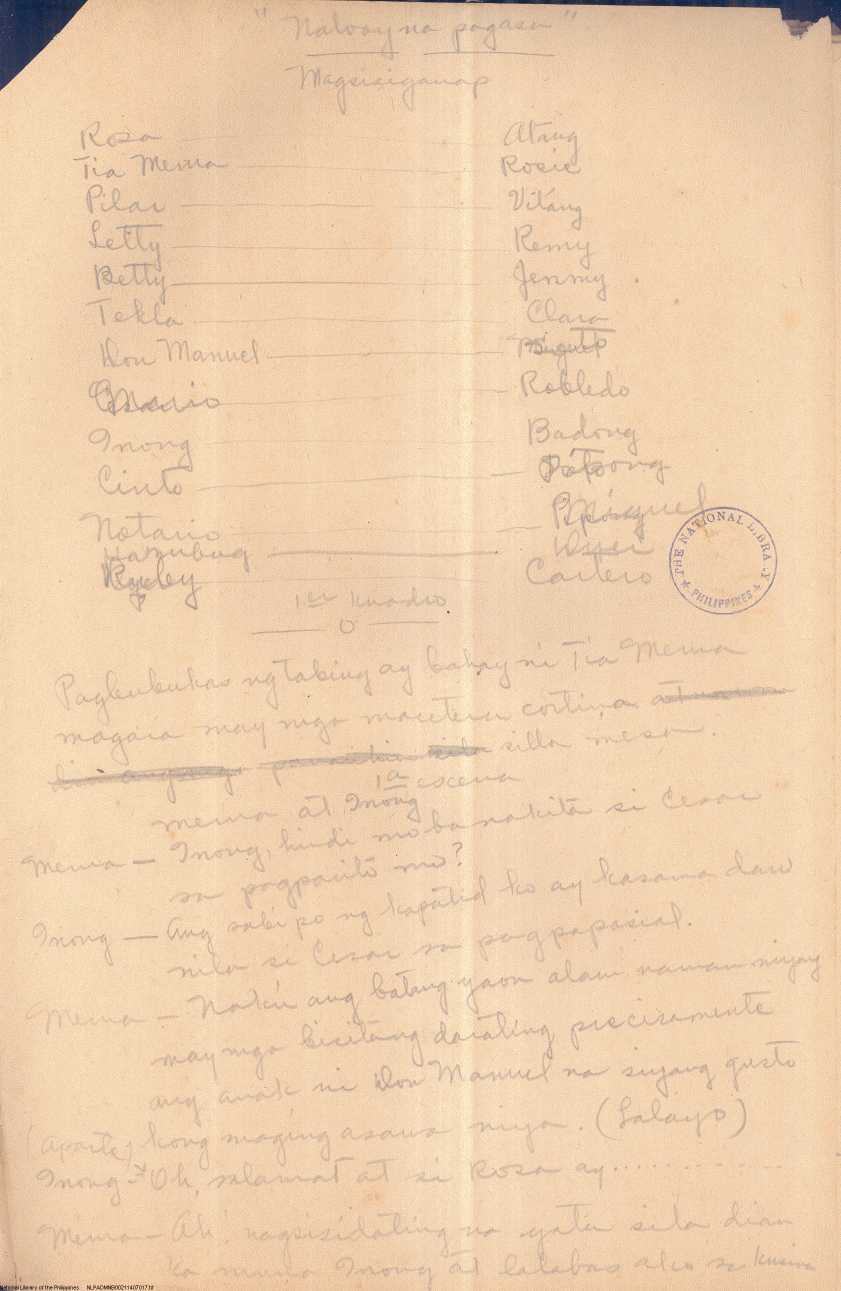 "Naluoy na pagasa"
Magsisiganap
Rosa Atang
Tia Mema Rosie
Pilar Vitang
Letty Remy
Betty Jenmy
Tekla Clara
Don Manuel
Mario Robledo
Inong Badong
Cinto
Notario Miguel
Cartero
1er Kuadro
O
Pagbubukas ng tabing ay bahay ni Tia Mema
magara may mga macetera cortina
silla mesa.
1a escena
Mema at Inong
Mema — Inong, hindi mo ba nakita si Cesar
sa pagparito mo?
Inong — Ang sabi po ng kapatid ko ay kasama daw
nila si Cesar sa pagpapasial.
Mema — Nakú ang batang yaon alam naman niyang
may mga bisitang darating precisamente
ang anak ni Don Manuel na siyang gusto
kong maging asawa niya. (Lalayo)
(aparte)
Inong — Oh, salamat at si Rosa ay............
Mema — Ah! nagsisidating na yata sila dian
ka muna Inong at lalabas ako sa kusina
THE NATIONAL LIBRARY
PHILIPPINES
National Library of the Philippines NLPADMNB00211407017.tif